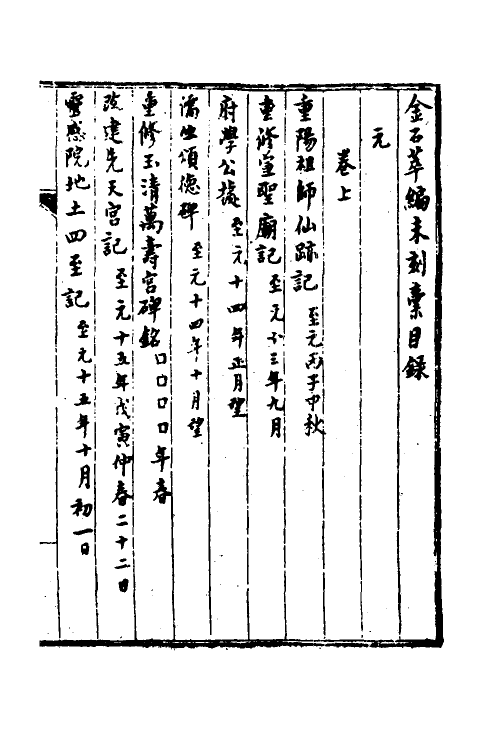 金石萃編未刻稾目録
元
卷上
重陽祖師仙跡記 至元丙子中秋
重修宣聖廟記 至元十三年九月
府學公據 至元十四年正月望
濡𠙚頌德碑 至元十四年十月望
重修玉清萬壽宮碑銘 口口口口年春
改建先天宮記 至元十五年戊寅仲春二十二日
靈感院地土四至記 至元十五年十月初一日